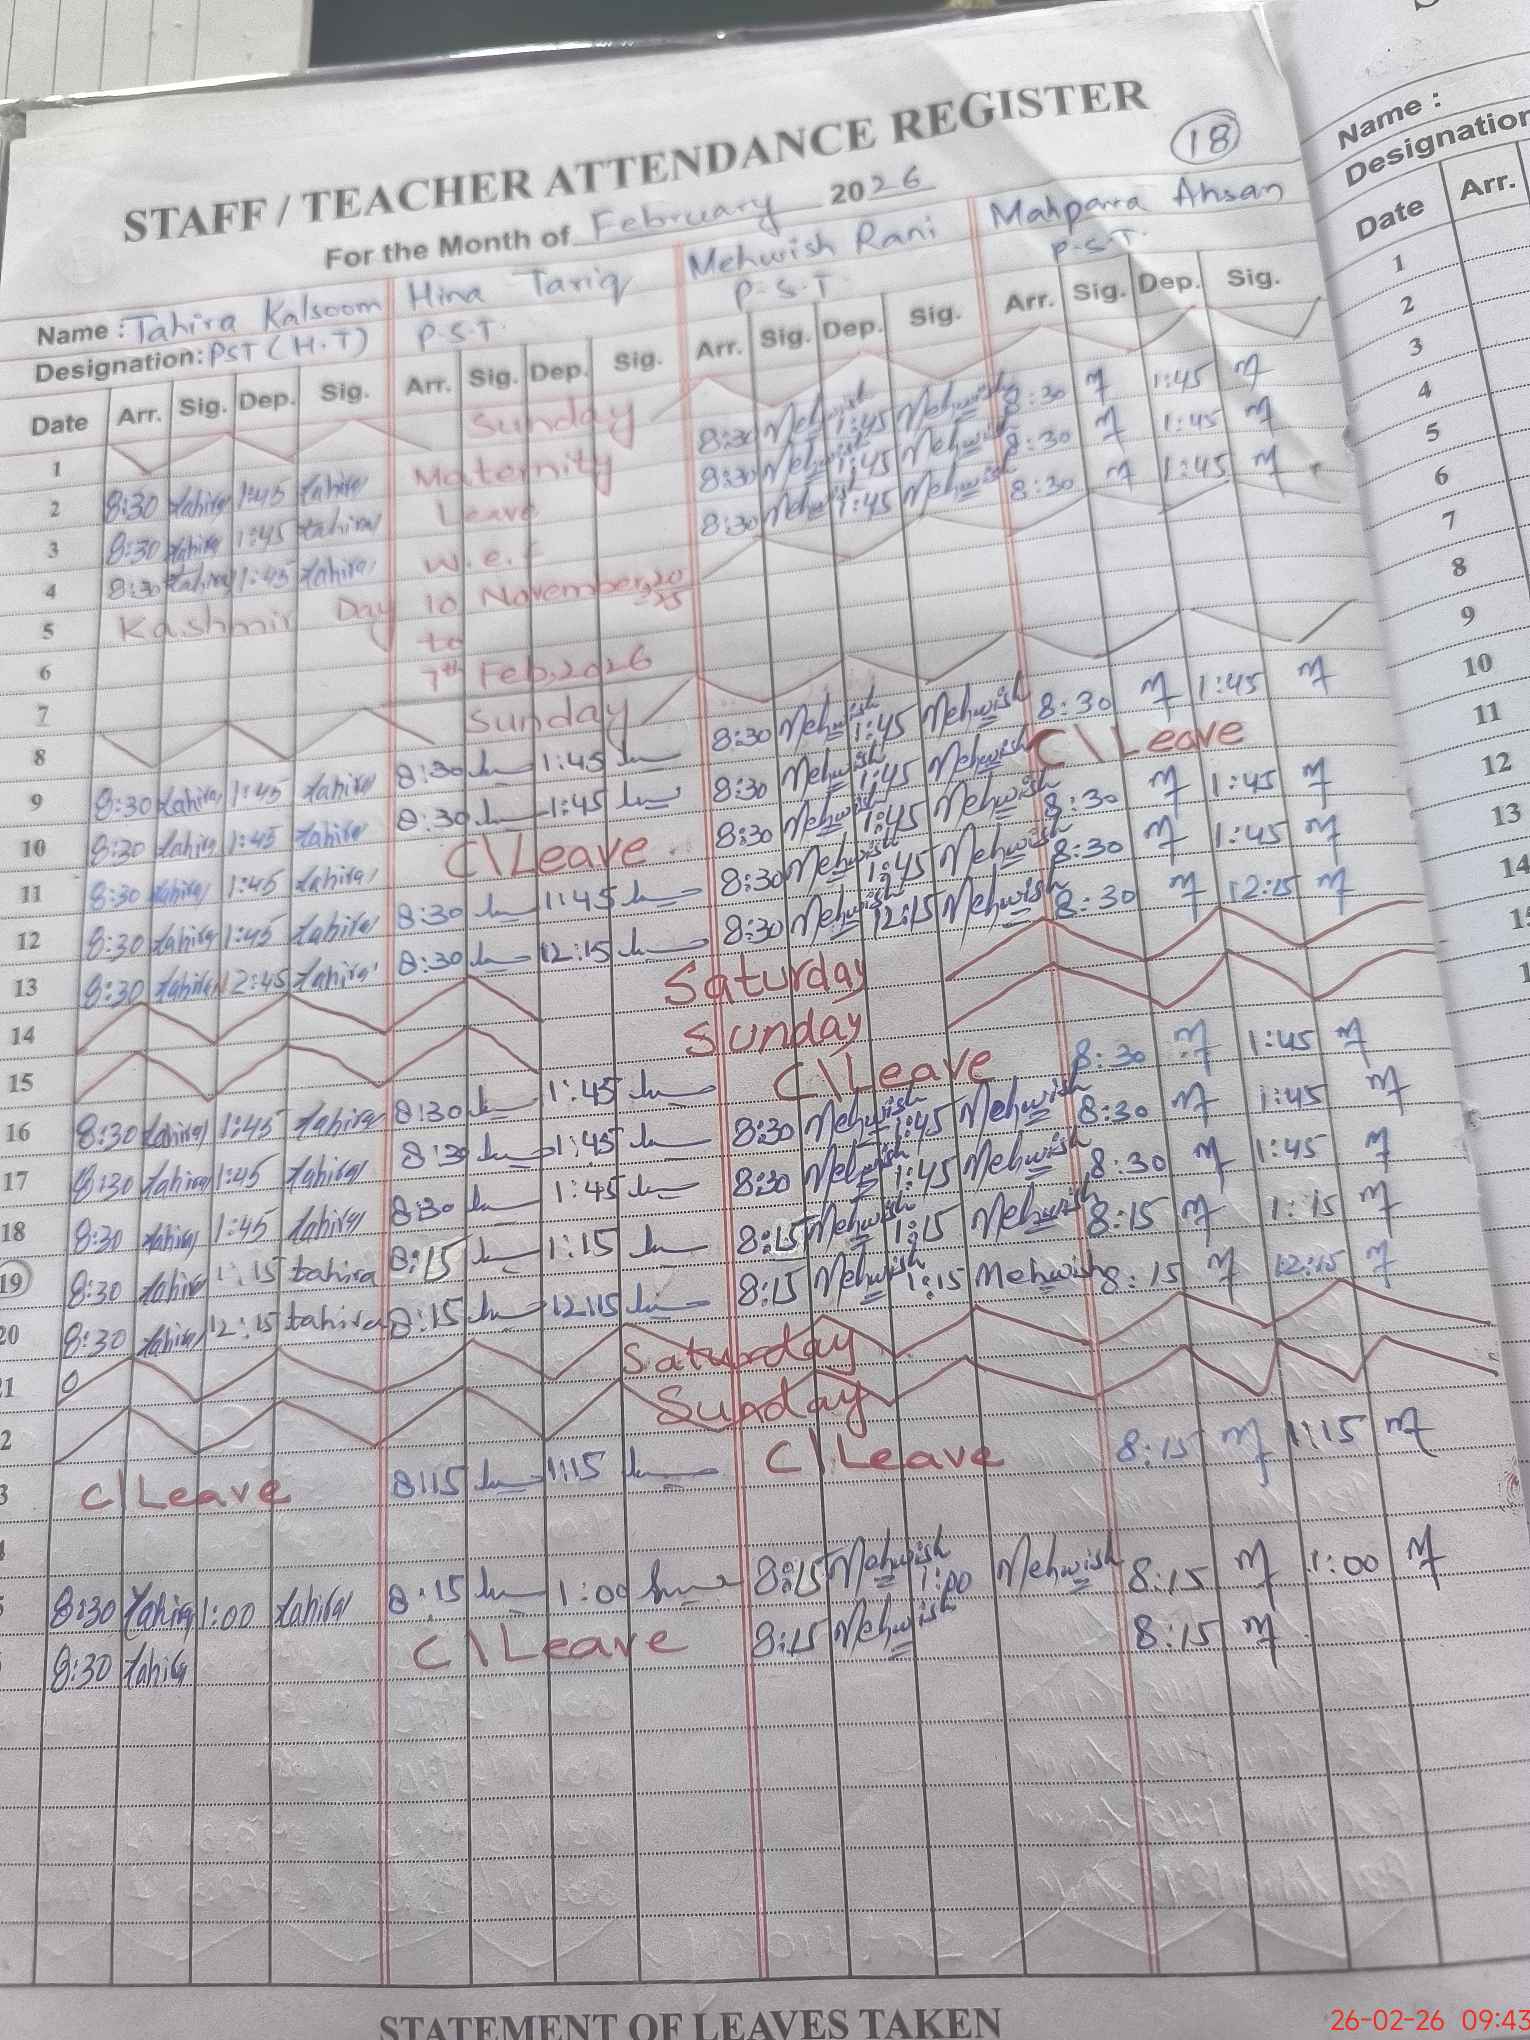 STAFF / TEACHER ATTENDANCE REGISTER
18
For the Month of February 2026
Name : Tahira Kalsoom Hina Tariq Mehwish Rani Mahparra Ahsan
Designation: PST (H.T) P.S.T. P.S.T. P.S.T.
Date Arr. Sig. Dep. Sig. Arr. Sig. Dep. Sig. Arr. Sig. Dep. Sig. Arr. Sig. Dep. Sig.
1 Sunday
2 8:30 tahira 1:45 tahira Maternity 8:30 Mehwish 1:45 Mehwish 8:30 M 1:45 M
3 8:30 tahira 1:45 tahira Leave 8:30 Mehwish 1:45 Mehwish 8:30 M 1:45 M
4 8:30 tahira 1:45 tahira w.e.f 8:30 Mehwish 1:45 Mehwish 8:30 M 1:45 M
5 Kashmir Day 10 November, 2025
6 to
7 7th Feb, 2026
8 Sunday
9 8:30 tahira 1:45 tahira 8:30 1:45 8:30 Mehwish 1:45 Mehwish 8:30 M 1:45 M
10 8:30 tahira 1:45 tahira 8:30 1:45 8:30 Mehwish 1:45 Mehwish C\Leave
11 8:30 tahira 1:45 tahira C\Leave 8:30 Mehwish 1:45 Mehwish 8:30 M 1:45 M
12 8:30 tahira 1:45 tahira 8:30 1:45 8:30 Mehwish 1:45 Mehwish 8:30 M 1:45 M
13 8:30 tahira 12:45 tahira 8:30 12:15 8:30 Mehwish 12:15 Mehwish 8:30 M 12:15 M
14 Saturday
15 Sunday
16 8:30 tahira 1:45 tahira 8:30 1:45 C\Leave 8:30 M 1:45 M
17 8:30 tahira 1:45 tahira 8:30 1:45 8:30 Mehwish 1:45 Mehwish 8:30 M 1:45 M
18 8:30 tahira 1:45 tahira 8:30 1:45 8:30 Mehwish 1:45 Mehwish 8:30 M 1:45 M
19 8:30 tahira 1:15 tahira 8:15 1:15 8:15 Mehwish 1:15 Mehwish 8:15 M 1:15 M
20 8:30 tahira 12:15 tahira 8:15 12:15 8:15 Mehwish 1:15 Mehwish 8:15 M 12:15 M
21 Saturday
2 Sunday
3 C\Leave 8:15 1:15 C\Leave 8:15 M 1:15 M
8:30 tahira 1:00 tahira 8:15 1:00 8:15 Mehwish 1:00 Mehwish 8:15 M 1:00 M
8:30 tahira C\Leave 8:15 Mehwish 8:15 M
STATEMENT OF LEAVES TAKEN
Name :
Designation
Date Arr.
1
2
3
4
5
6
7
8
9
10
11
12
13
14
26-02-26 09:43